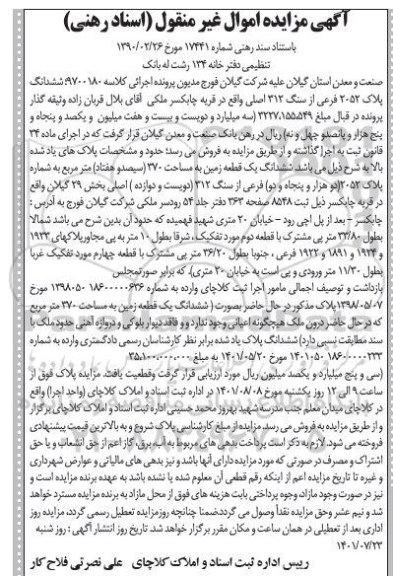 آگهی مزایده اموال غیر منقول (اسناد رهنی)
باستناد سند رهنی شماره ۱۷۴۴۱ مورخ ۱۳۹۰/۰۲/۲۶
تنظیمی دفتر خانه ۱۳۴ رشت له بانک
صنعت و معدن استان گیلان علیه شرکت گیلان فورج مدیون پرونده اجرائی کلاسه ۹۷۰۰۱۸۰؛ ششدانگ
پلاک ۲۰۵۲ فرعی از سنگ ۳۱۲ اصلی واقع در قریه چابکسر ملکی آقای بلال قربان زاده وثیقه گذار
پرونده در قبال مبلغ ۳۲۲۷،۱۵۵،۵۴۹ (سه میلیارد و دویست و بیست و هفت میلیون و یکصد و پنجاه و
پنج هزار و پانصدو چهل و نه) ریال در رهن بانک صنعت و معدن گیلان قرار گرفت که در اجرای ماده ۳۴
قانون ثبت به اجرا گذاشته و از طریق مزایده به فروش می رسد؛ حدود و مشخصات پلاک های یاد شده
بالا به شرح ذیل می باشد. ششدانگ یک قطعه زمین به مساحت ۳۷۰ (سیصدو هفتاد) متر مربع به شماره
پلاک ۲۰۵۲(دو هزار و پنجاه و دو) فرعی از سنگ ۳۱۲ (دویست و دوازده ) اصلی بخش ۲۹ گیلان واقع
در قریه چابکسر ذیل ثبت ۸۵۴۸ صفحه ۳۶۳ دفتر جلد ۵۴ رودسر ملکی شرکت گیلان فورج به آدرس :
چابکسر - بعد از پل اچی رود - خیابان ۲۰ متری شهید فهمیده که حدود آن بدین شرح می باشد شمالا
بطول ۳۳/۸۰ متر پی مشترک با قطعه دوم مورد تفکیک ، شرقا بطول ۱۰ متر به پی مجاورپلاکهای ۱۹۳۳
و ۱۹۲۴ و ۱۸۹۱ و ۱۹۲۲ فرعی ، جنوبا بطول ۳۶/۲۰ متر پی مشترک با قطعه چهارم مورد تفکیک غربا
بطول ۱۱/۳۰ متر ورودی و پی است به خیابان ۲۰ متری). که برابر صورتمجلس
بازداشت و توصیف اجمالی مامور اجرا ثبت کلاچای وارده به شماره ۱۳۹۸۰۵۰۱۸۶۰۰۰۰۰۶۳۶
۱۳۹۸/۰۵/۰۷ پلاک مذکور در حال حاضر بصورت ( ششدانگ یک قطعه زمین به مساحت ۳۷۰ متر مربع
که در حال حاضر درون ملک هیچگونه اعیانی وجود ندارد و و فاقد دیوار بلوکی و دروازه آهنی حدود ملک با
سند مطابقت نسبی دارد) ششدانگ پلاک یاد شده برابر نظر کارشناسان رسمی دادگستری وارده به شماره
۱۴۰۱۰۵۰۱۸۶۰۰۰۰۰۲۳۳ مورخ ۱۴۰۱/۰۵/۲۰ به مبلغ ۳۵،۱۰۰،۰۰۰،۰۰۰
(سی و پنج میلیارد و یکصد میلیون ریال مورد ارزیابی قرار گرفت وقطعیت یافت. مزایده پلاک فوق از
ساعت ۹ الی ۱۲ روز یکشنبه مورخ ۱۴۰۱/۰۸/۰۸ در اداره ثبت اسناد و املاک کلاچای (واحد اجرا) واقع
در کلاچای میدان معلم جنب مدرسه شهید بهروز محمد حسینی اداره ثبت اسناد و املاک کلاچای برگزار
و از طریق مزایده به فروش می رسد. مزایده از مبلغ کارشناسی پلاک شروع و به بالاترین قیمت پیشنهادی
فروخته می شود. لازم به ذکر است پرداخت بدهی های مربوط به آب، برق، گاز اعم از حق انشعاب و یا حق
اشتراک و مصرف در صورتی که مورد مزایده دارای آنها باشد و نیز بدهی های مالیاتی و عوارض شهرداری
و غیره تا تاریخ مزایده اعم از اینکه رقم قطعی آن معلوم شده یا نشده باشد به عهده برنده مزایده است و
نیز در صورت وجود مازاد، وجوه پرداختی بابت هزینه های فوق از محل مازاد به برنده مزایده مسترد خواهد
شد و نیم عشر وحق مزایده نقدا وصول می گردد.ضمنا چنانچه روزمزایده تعطیل رسمی گردد، مزایده روز
اداری بعد از تعطیلی در همان ساعت و مکان مقرر برگزار خواهد شد. تاریخ روز انتشار آگهی : روز شنبه
۱۴۰۱/۰۷/۲۳
رییس اداره ثبت اسناد و املاک کلاچای علی نصرتی فلاح کار